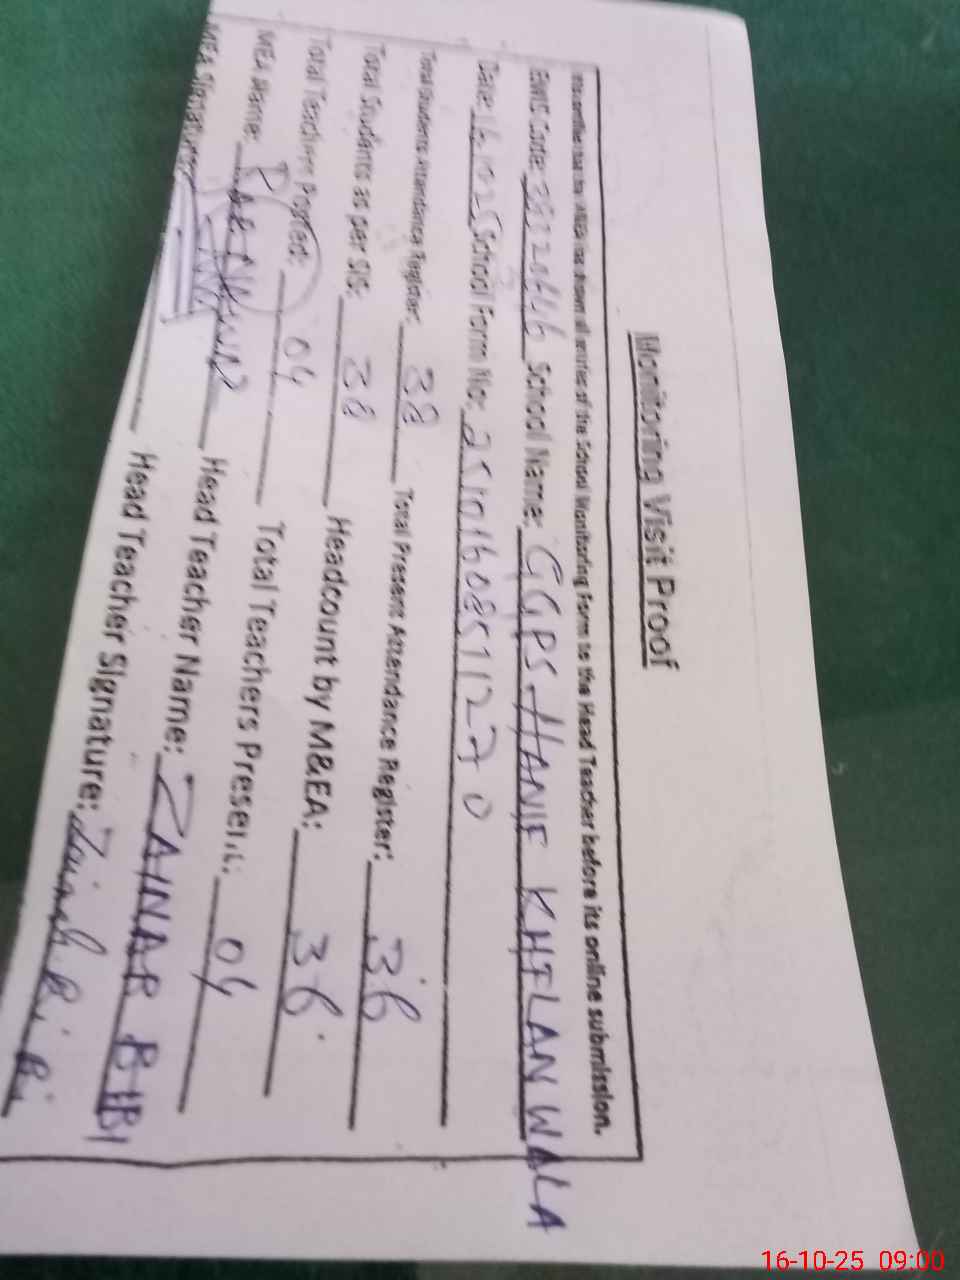 Monitoring Visit Proof
that the MEA has shown all entries of the School Monitoring Form to the Head Teacher before its online submission.
EMIS Code: School Name: GGPS HANIF KHILAN WALA
Date: 16.10.25 School Form No: 251016085112770
Total Students Attendance Register: 38 Total Present Attendance Register: 36
Total Students as per SIS: 38 Headcount by M&EA: 36
Total Teachers Posted: 04 Total Teachers Present: 04
MEA Name: Head Teacher Name: ZAINAB BIBI
MEA Signature: Head Teacher Signature: Zainab Bibi
16-10-25 09:00